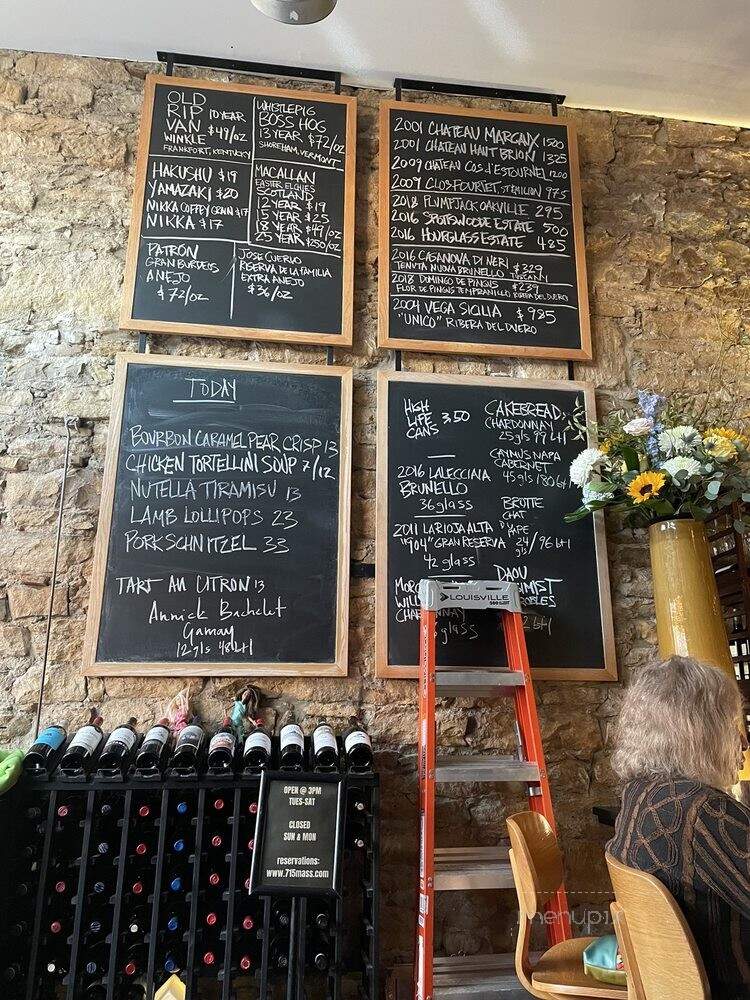 OLD
RIP 10 YEAR
VAN $49/OZ
WINKLE
FRANKFORT, KENTUCKY
WHISTLEPIG
BOSS HOG
13 YEAR $72/OZ
SHOREHAM, VERMONT
HAKUSHU $19
YAMAZAKI $20
NIKKA COFFEY GRAIN $17
NIKKA $17
MACALLAN
EASTER ELCHIES
SCOTLAND
12 YEAR $19
15 YEAR $25
18 YEAR $49/OZ
25 YEAR $250/OZ
PATRÓN
GRAN BURDEOS
ANEJO
$72/OZ
JOSE CUERVO
RESERVA DE LA FAMILIA
EXTRA ANEJO
$36/OZ
2001 CHATEAU MARGAUX 1500
2001 CHATEAU HAUT BRION 1325
2009 CHATEAU COS d'ESTOURNEL 1200
2009 CLOS FOURTET, ST. EMILION 975
2018 PLUMPJACK OAKVILLE 295
2016 SPOTTSWOODE ESTATE 500
2016 HOURGLASS ESTATE 485
2016 CASANOVA DI NERI $329
TENUTA NUOVA BRUNELLO TUSCANY
2018 DOMINGO DE PINGUS $239
FLOR DE PINGUS TEMPRANILLO RIBERA DEL DUERO
2004 VEGA SICILIA $985
"UNICO" RIBERA DEL DUERO
TODAY
BOURBON CARAMEL PEAR CRISP 13
CHICKEN TORTELLINI SOUP 7/12
NUTELLA TIRAMISU 13
LAMB LOLLIPOPS 23
PORK SCHNITZEL 33
TART AU CITRON 13
Annick Bachelet
Gamay
12gls 48btl
HIGH
LIFE 3.50
CANS
2016 LALECCIAIA
BRUNELLO
36 glass
2011 LA RIOJA ALTA
"904" GRAN RESERVA
42 glass
CAKEBREAD
CHARDONNAY
25gls 99btl
CAYMUS NAPA
CABERNET
45gls 180btl
BROTTE
CHAT
D PAPE
24 gls/96 btl
DAOU
LOUISVILLE
glass
OPEN @ 3PM
TUES-SAT
CLOSED
SUN & MON
reservations:
www.715mass.com
menupix